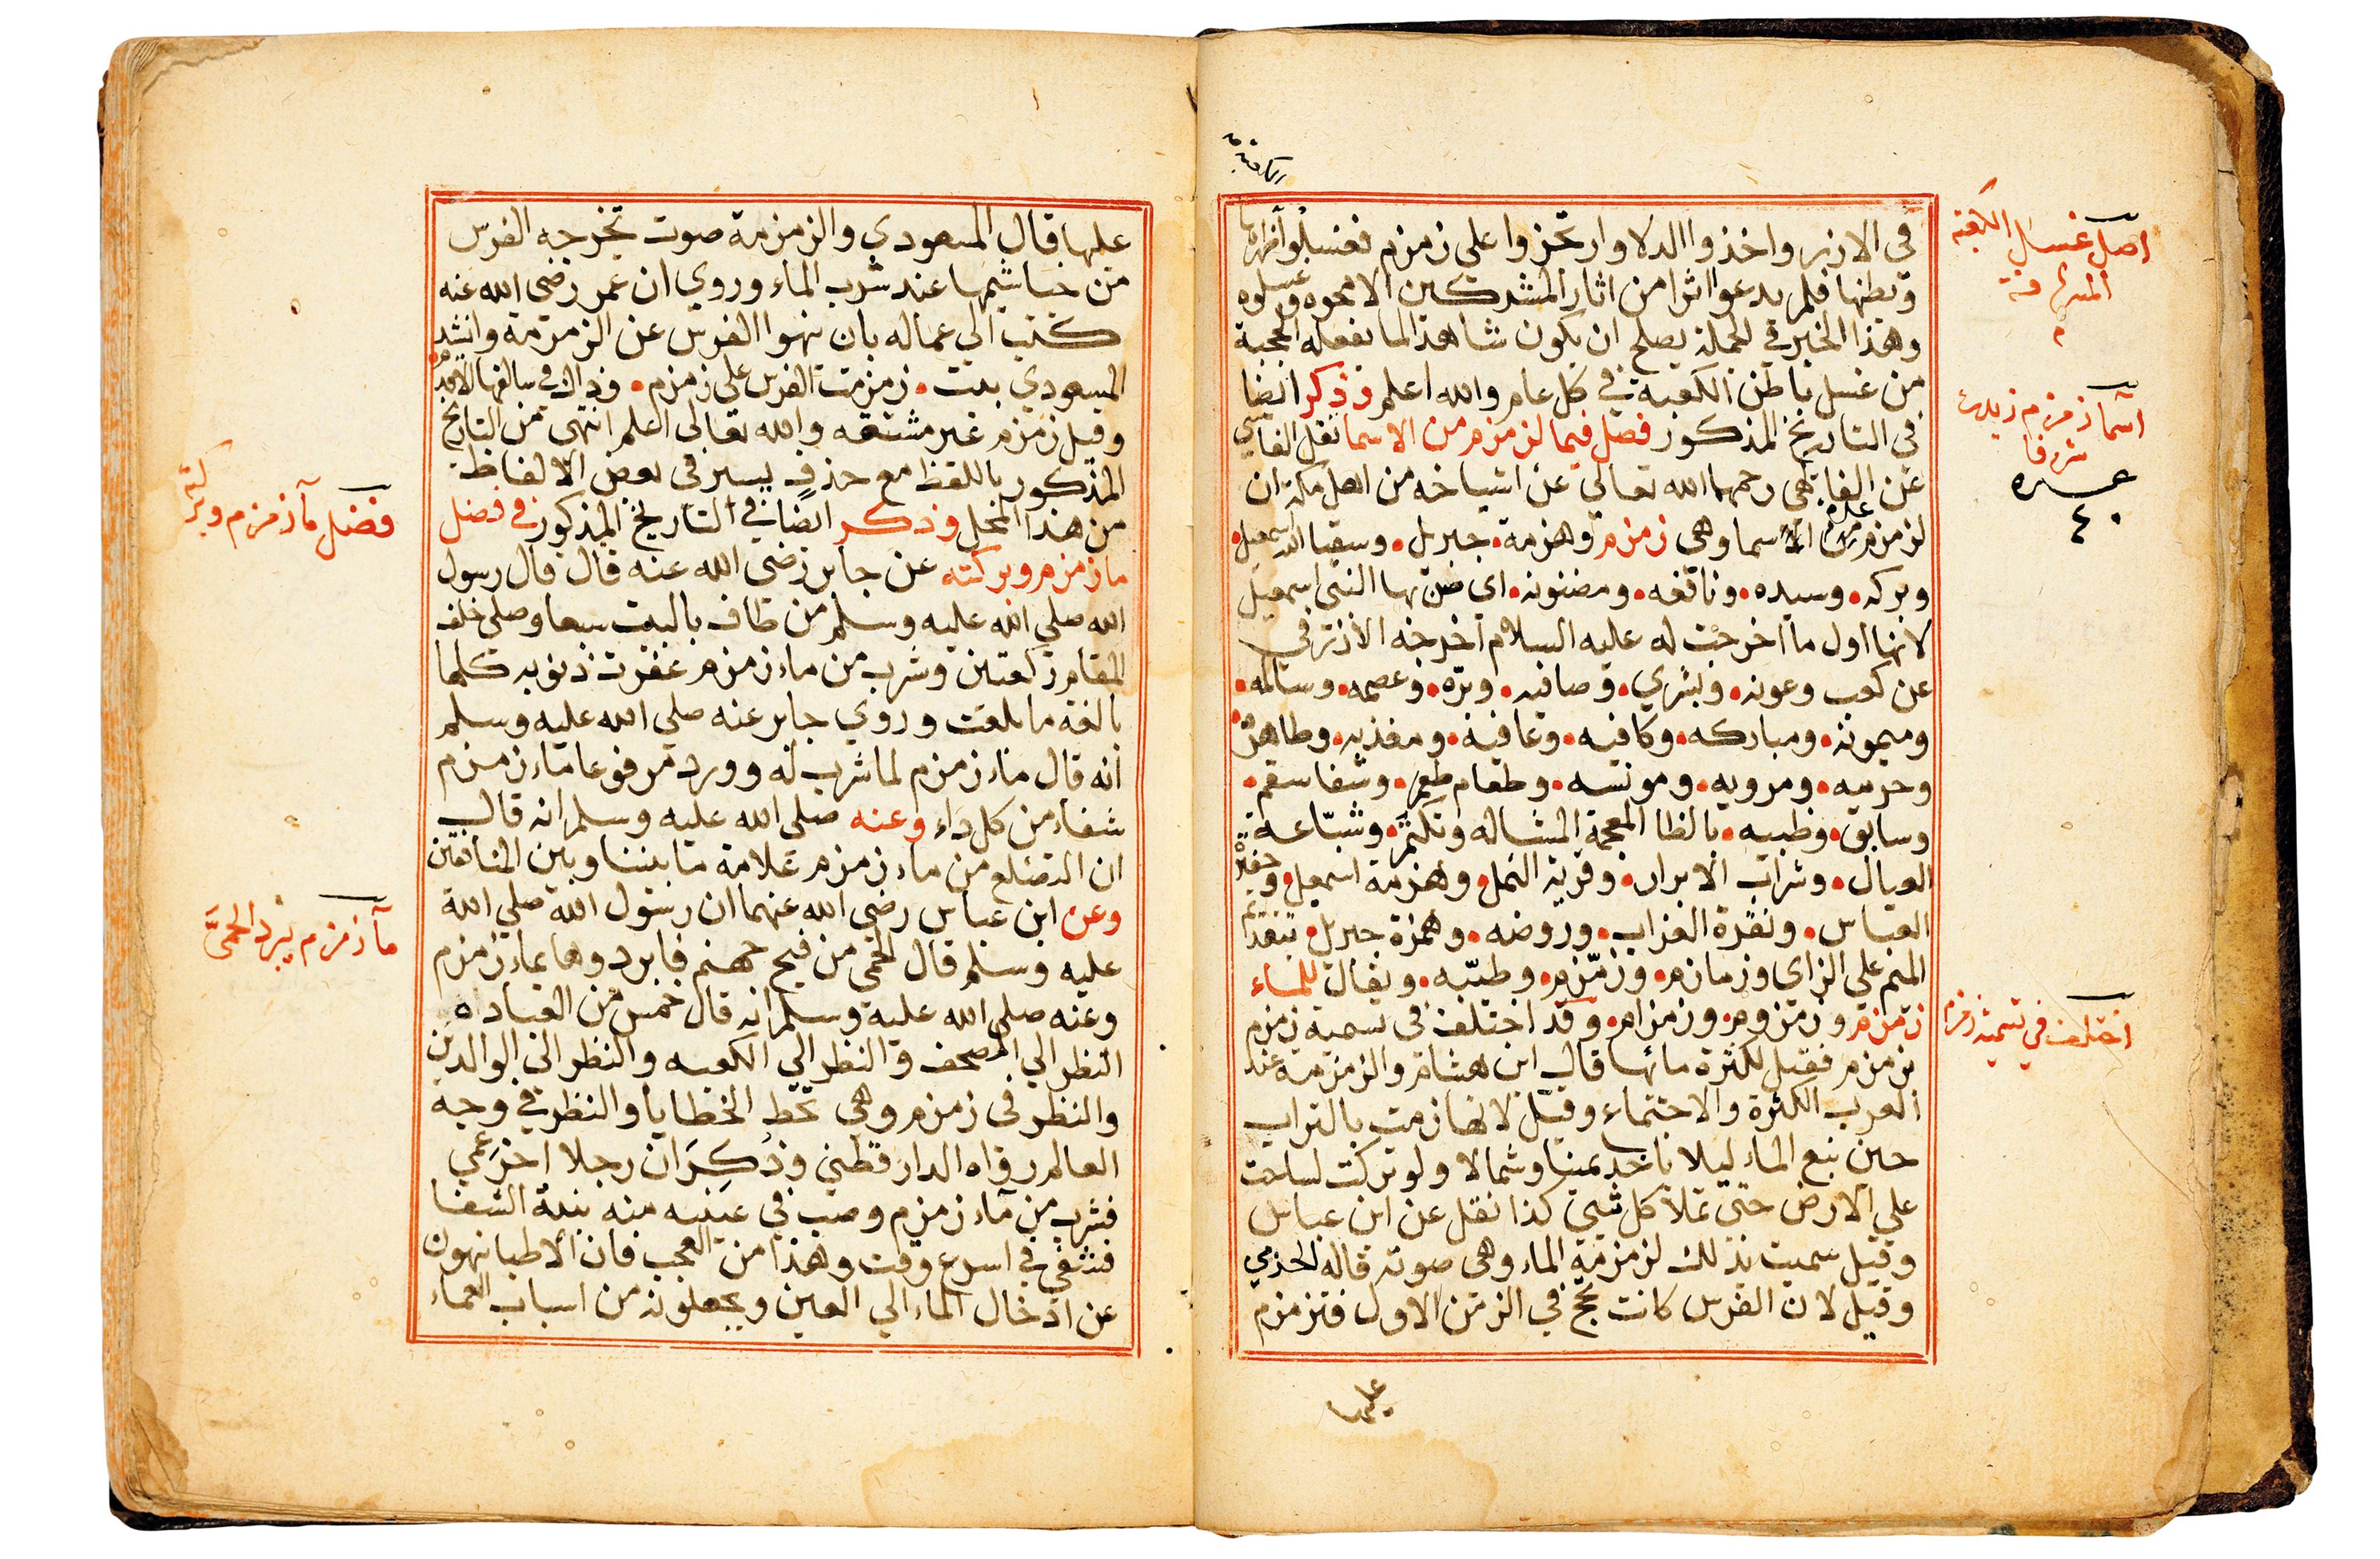 في الازر واخذوا الدلا وارتجزوا على زمزم فغسلوا ظهرها
وبطنها فلم يدعوا اثرا من اثار المشركين الا محوه وغسلوه
وهذا الخبر في الجملة يصلح ان يكون شاهدا لما يفعله الحجبة
من غسل باطن الكعبة في كل عام والله اعلم وذكر ايضا
في التاريخ المذكور فصل فيما لزمزم من الاسما نقل الفاسي
عن الفاكهي رحمهما الله تعالي عن اشياخه من اهل مكة ان
لزمزم عدة من الاسما وهي زمزم وهزمة جبريل وسقيا الله اسمعيل
وبركه وسيده ونافعه ومضنونه اي ضن بها النبي اسمعيل
لانها اول ما اخرجت له عليه السلام اخرجه الازرقي
عن كعب وعونه وبشري وصافيه وبره وعصمه وسالمه
وميمونه ومباركه وكافيه وعافية ومغذيه وطاهرة
وحرميه ومرويه ومونسه وطعام طعم وشفا سقم
وسابق وظبيه بالظا المعجمة المشاله وتكتم وشباعة
العيال وشراب الابرار وقرية النمل وهزمة اسمعيل وحفيرة
العباس ونقرة الغراب وروضه وهمزة جبريل بتقديم
الميم علي الزاي وزمازم وزمزم وطيبه ويقال للماء
زمزم وزمزوم وزمزام وقد اختلف في تسمية زمزم
بزمزم فقيل لكثرة مائها قال ابن هشام والزمزمة عند
العرب الكثرة والاجتماع وقيل لانها زمت بالتراب
حين نبع الماء ليلا ياخد يمينا وشمالا ولو تركت لساحت
علي الارض حتي تملا كل شي كذا نقل عن ابن عباس
وقيل سميت بذلك لزمزمة الماء وهي صوته قاله الحربي
وقيل لان الفرس كانت تحج في الزمن الاول فتزمزم
عليها
اصل غسل الكعبة
المشرفة
اسما زمزم زيدت
شرفا
٤٠
اختلف في تسمية زمزم
عليها قال المسعودي والزمزمة صوت تخرجه الفرس
من خياشيمها عند شرب الماء وروي ان عمر رضي الله عنه
كتب الي عماله بان ينهوا الفرس عن الزمزمة وانشد
المسعودي بيت زمزمت الفرس علي زمزم وذاك في سالفها الاقدم
وقيل زمزم غير مشتقه والله تعالي اعلم انتهي من التاريخ
المذكور باللفظ مع حذف يسير في بعض الالفاظ
من هذا المحل وذكر ايضا في التاريخ المذكور في فضل
ما زمزم وبركته عن جابر رضي الله عنه قال قال رسول
الله صلي الله عليه وسلم من طاف بالبيت سبعا وصلي خلف
المقام ركعتين وشرب من ماء زمزم غفرت ذنوبه كلها
بالغة ما بلغت وروي جابر عنه صلي الله عليه وسلم
انه قال ماء زمزم لما شرب له وورد مرفوعا ماء زمزم
شفاء من كل داء وعنه صلي الله عليه وسلم انه قال
ان التضلع من ماء زمزم علامة ما بيننا وبين المنافقين
وعن ابن عباس رضي الله عنهما ان رسول الله صلي الله
عليه وسلم قال الحمي من فيح جهنم فابردوها بماء زمزم
وعنه صلي الله عليه وسلم انه قال خمس من العباده
النظر الي المصحف والنظر الي الكعبه والنظر الي الوالدين
والنظر في زمزم وهي تحط الخطايا والنظر في وجه
العالم رواه الدارقطني وذكر ان رجلا اخر عمي
فشرب من ماء زمزم وصب في عينيه منه بنية الشفا
فشفي في اسرع وقت وهذا من العجب فان الاطبا ينهون
عن ادخال الماء الي العين ويجعلونه من اسباب العماء
فضل ماء زمزم وبركته
ماء زمزم يبرد الحمى